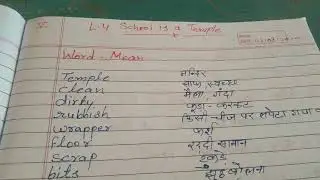 L.4 School is a Temple
Word - Mean
Temple मन्दिर
clean साफ, स्वच्छ
dirty मैला, गंदा
rubbish कूड़ा-करकट
wrapper किसी चीज पर लपेटा गया
floor फर्श
scrap रद्दी सामान
bits टुकड़े
झूठ बोलना